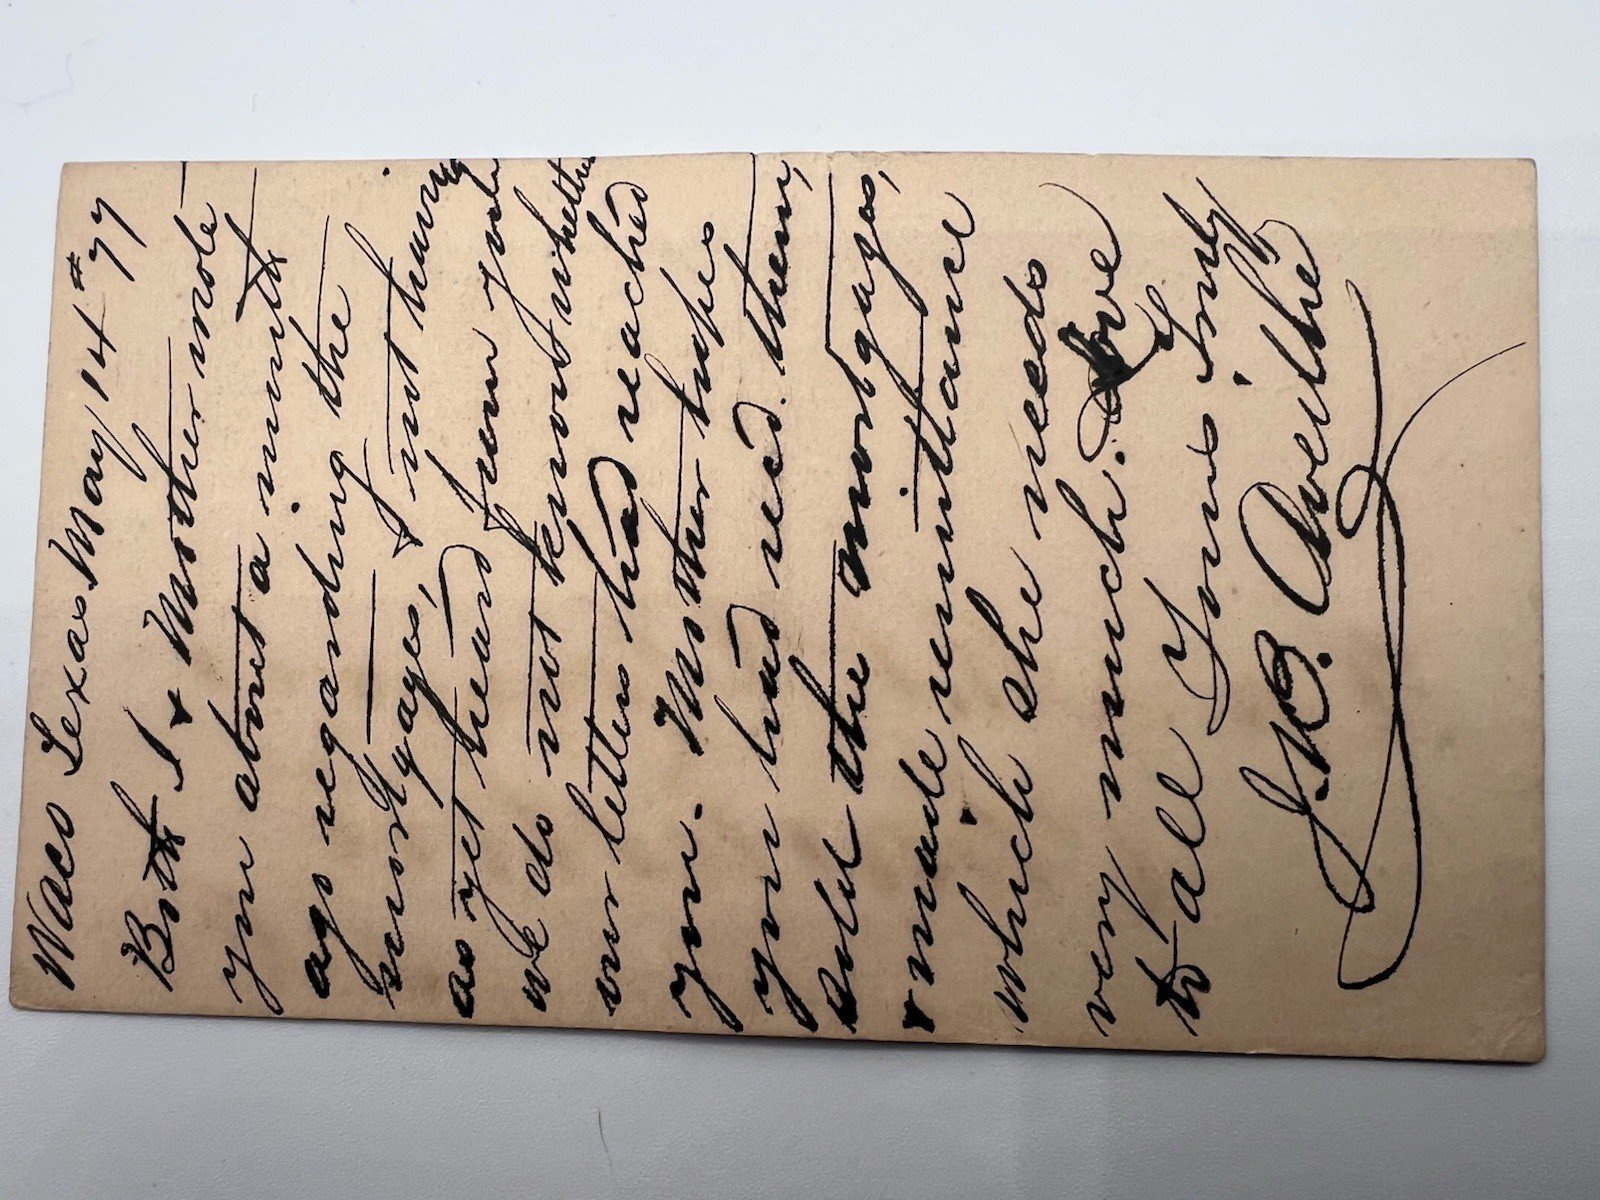 Waco Texas. May 14th 77
Both I & Mother wrote
you about a month
ago regarding the
mortgages, & not having
as yet heard from you
we do not know whether
our letters had reached
you. Mother hopes
you had recd. them,
sold the mortgages,
& made remittance
which she needs
very much. Love
to all Yours Truly
J. B.